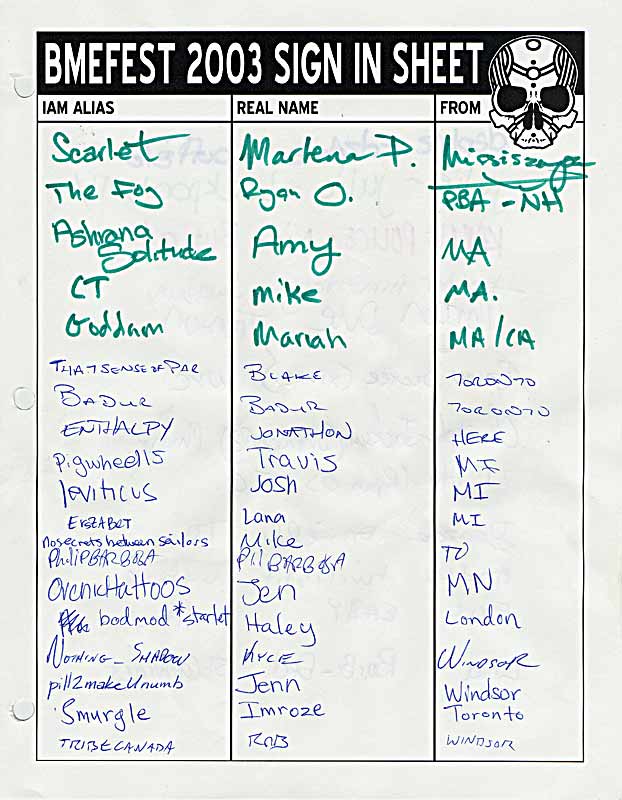 BMEFEST 2003 SIGN IN SHEET
IAM ALIAS REAL NAME FROM
Scarlet Marlena P.
The Fog Ryan O. PBA - NH
Ashrana Solitude Amy MA
CT Mike MA.
Goddam Mariah MA/CA
THAT SENSE OF PAR BLAKE TORONTO
BADUR BADUR TORONTO
ENTHALPY JONATHON HERE
pigwheels Travis MI
leviticus Josh MI
ERSZABET Lana MI
nosecretsbetweensailors Mike
PhilipBARBOSA Pil BARBOSA TO
Jen MN
bodmod*starlet Haley London
NOTHING_SHADOW KYLE WINDSOR
pill2makeUnumb Jenn Windsor
Smurgle Imroze Toronto
TRIBECANADA ROB WINDSOR